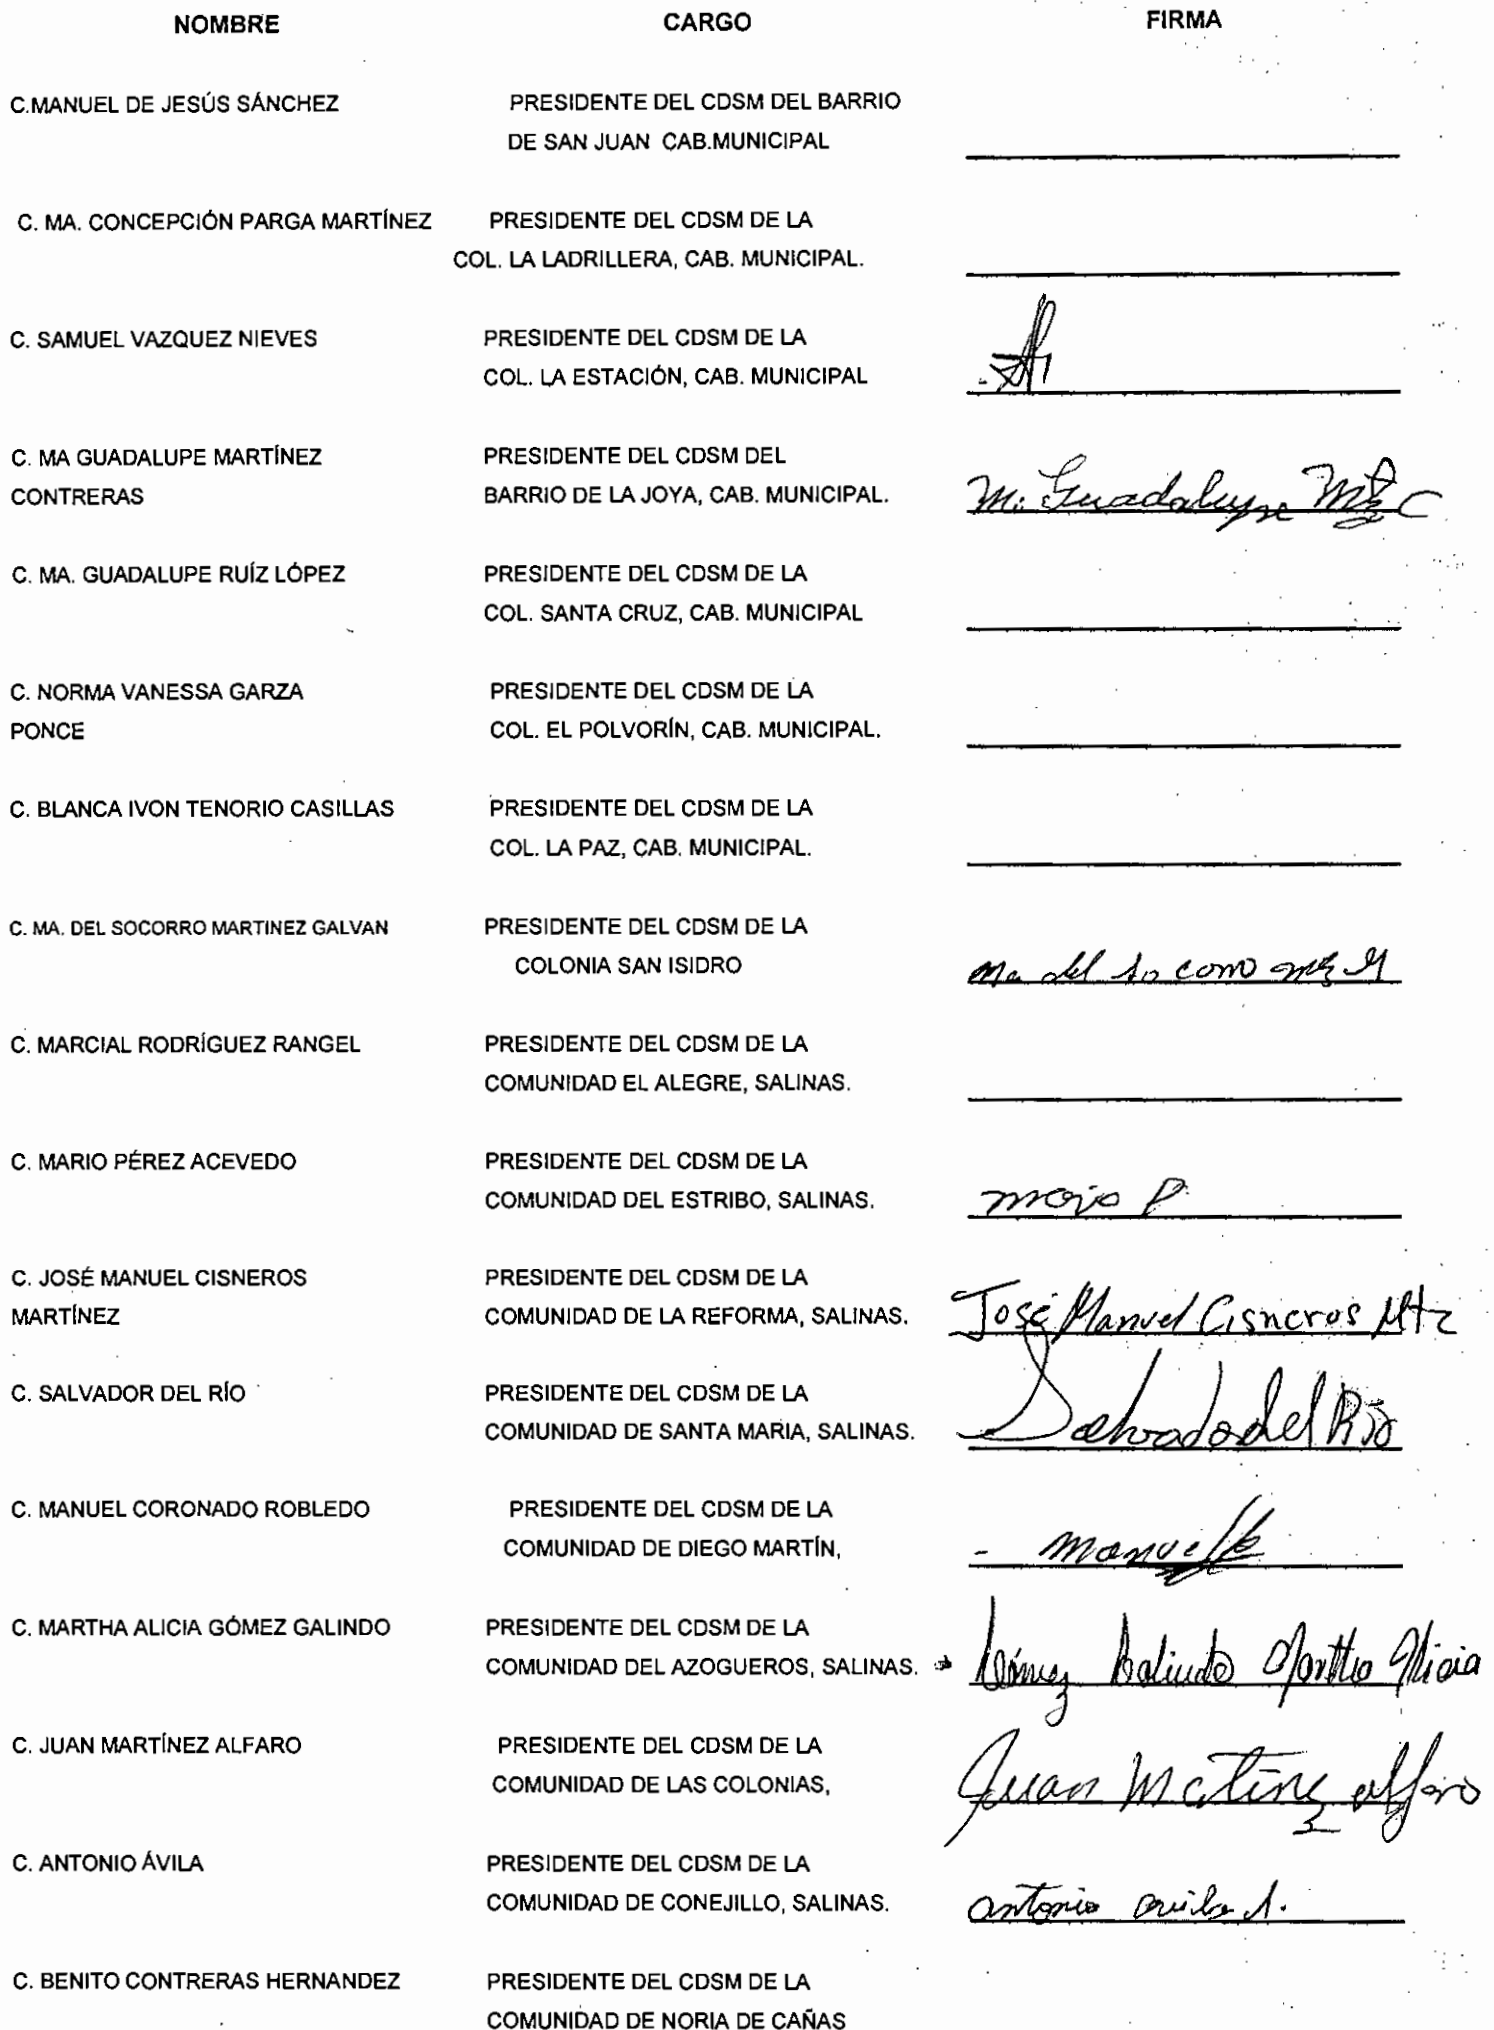 NOMBRE CARGO FIRMA
C.MANUEL DE JESÚS SÁNCHEZ PRESIDENTE DEL CDSM DEL BARRIO
DE SAN JUAN CAB.MUNICIPAL
C. MA. CONCEPCIÓN PARGA MARTÍNEZ PRESIDENTE DEL CDSM DE LA
COL. LA LADRILLERA, CAB. MUNICIPAL.
C. SAMUEL VAZQUEZ NIEVES PRESIDENTE DEL CDSM DE LA
COL. LA ESTACIÓN, CAB. MUNICIPAL
C. MA GUADALUPE MARTÍNEZ PRESIDENTE DEL CDSM DEL
CONTRERAS BARRIO DE LA JOYA, CAB. MUNICIPAL. M. Guadalupe Mtz C
C. MA. GUADALUPE RUÍZ LÓPEZ PRESIDENTE DEL CDSM DE LA
COL. SANTA CRUZ, CAB. MUNICIPAL
C. NORMA VANESSA GARZA PRESIDENTE DEL CDSM DE LA
PONCE COL. EL POLVORÍN, CAB. MUNICIPAL.
C. BLANCA IVON TENORIO CASILLAS PRESIDENTE DEL CDSM DE LA
COL. LA PAZ, CAB. MUNICIPAL.
C. MA. DEL SOCORRO MARTINEZ GALVAN PRESIDENTE DEL CDSM DE LA
COLONIA SAN ISIDRO Ma del So corro mtz G
C. MARCIAL RODRÍGUEZ RANGEL PRESIDENTE DEL CDSM DE LA
COMUNIDAD EL ALEGRE, SALINAS.
C. MARIO PÉREZ ACEVEDO PRESIDENTE DEL CDSM DE LA
COMUNIDAD DEL ESTRIBO, SALINAS. P
C. JOSÉ MANUEL CISNEROS PRESIDENTE DEL CDSM DE LA
MARTÍNEZ COMUNIDAD DE LA REFORMA, SALINAS. José Manuel Cisneros Mtz
C. SALVADOR DEL RÍO PRESIDENTE DEL CDSM DE LA
COMUNIDAD DE SANTA MARIA, SALINAS. Salvado del Río
C. MANUEL CORONADO ROBLEDO PRESIDENTE DEL CDSM DE LA
COMUNIDAD DE DIEGO MARTÍN,
C. MARTHA ALICIA GÓMEZ GALINDO PRESIDENTE DEL CDSM DE LA
COMUNIDAD DEL AZOGUEROS, SALINAS. Gómez Galindo Martha Alicia
C. JUAN MARTÍNEZ ALFARO PRESIDENTE DEL CDSM DE LA
COMUNIDAD DE LAS COLONIAS, Juan Matinez alfaro
C. ANTONIO ÁVILA PRESIDENTE DEL CDSM DE LA
COMUNIDAD DE CONEJILLO, SALINAS. antonio avila A.
C. BENITO CONTRERAS HERNANDEZ PRESIDENTE DEL CDSM DE LA
COMUNIDAD DE NORIA DE CAÑAS